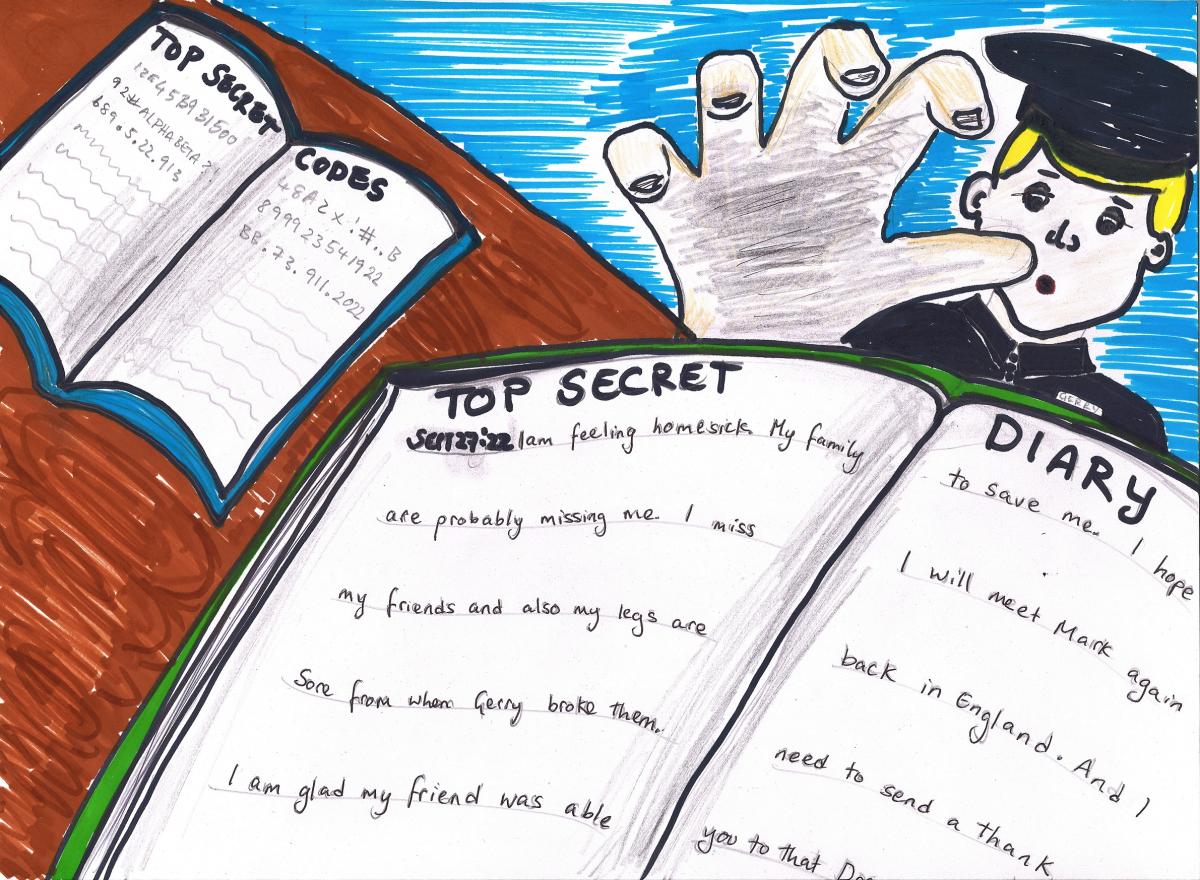 TOP SECRET
12E453931500
92#ALPHABETA?
689.5.22.913
CODES
48A2x!#..B
8999 23541922
BB.73.911.2022
GERRY
TOP SECRET
I am feeling homesick. My family
are probably missing me. I miss
my friends and also my legs are
Sore from when Gerry broke them.
I am glad my friend was able
DIARY
to save me. I hope
I will meet Mark again
back in England. And I
need to send a thank
you to that